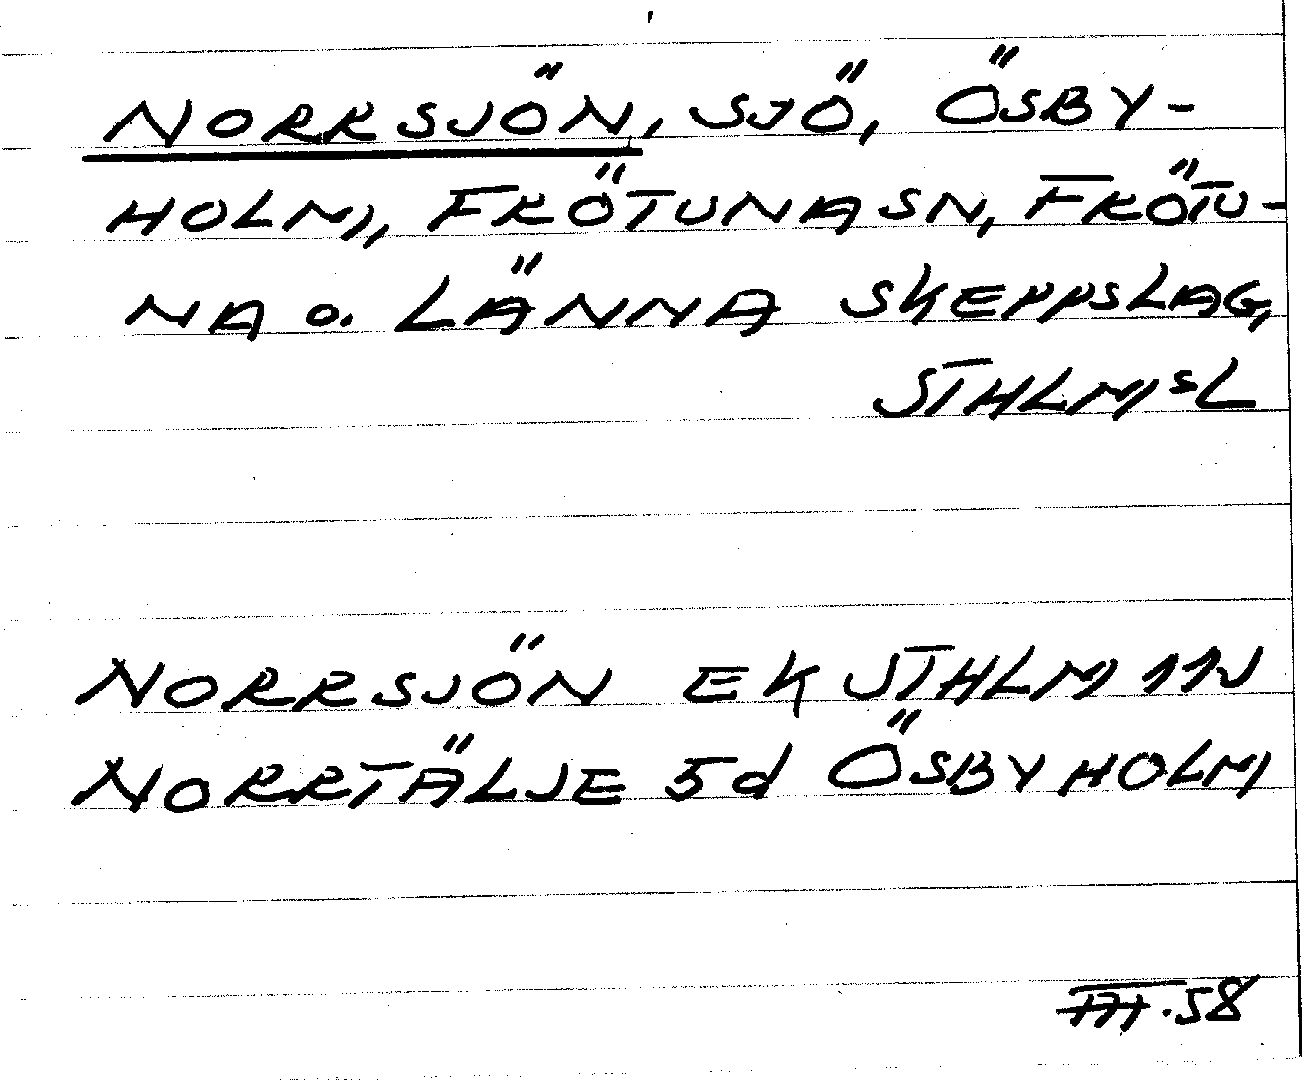 NORRSJÖN, SJÖ, ÖSBY-
HOLM, FRÖTUNA SN, FRÖTU-
NA o. LÄNNA SKEPPSLAG,
STHLMSL
NORRSJÖN EK STHLM 11N
NORRTÄLJE 5d ÖSBYHOLM
.58